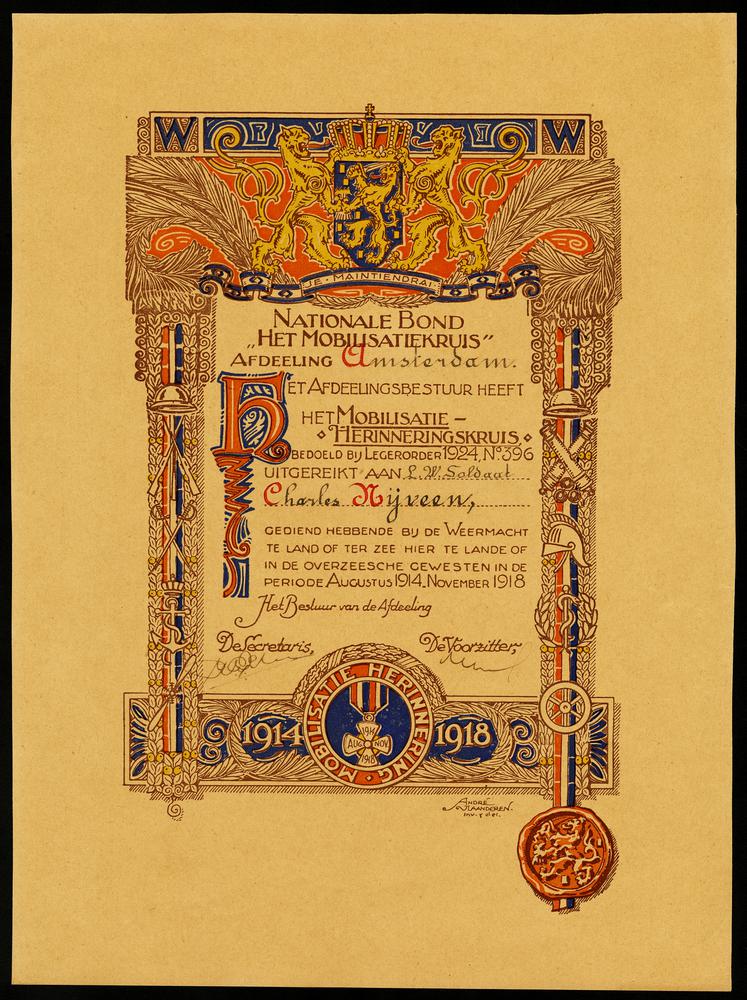 W W
JE · MAINTIENDRAI
NATIONALE BOND
„HET MOBILISATIEKRUIS”
AFDEELING Amsterdam.
HET AFDEELINGSBESTUUR HEEFT
HET MOBILISATIE-
HERINNERINGSKRUIS,
BEDOELD BIJ LEGERORDER 1924, No 396
UITGEREIKT AAN L.W. Soldaat
Charles Nijveen,
GEDIEND HEBBENDE BIJ DE WEERMACHT
TE LAND OF TER ZEE HIER TE LANDE OF
IN DE OVERZEESCHE GEWESTEN IN DE
PERIODE AUGUSTUS 1914-NOVEMBER 1918
Het Bestuur van de Afdeeling
De Secretaris, De Voorzitter,
MOBILISATIE HERINNERING
1914 1918
1914
AUG NOV
1918
ANDRÉ
VLAANDEREN.
inv. & del.